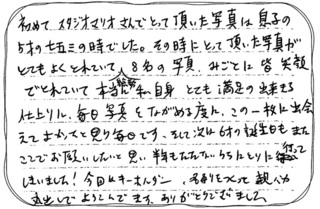 初めて スタジオマリオ さんでとって頂いた写真は息子の
5才の七五三の時でした。その時にとって頂いた写真が
とてもよくとれていて 8名の写真、みごとに皆笑顔
でとれていて 本当に 私自身 とても満足の出来る
仕上りに、毎日写真をながめる度に、この一枚に出会
えてよかったと思う毎日です。そして次に6才の誕生日もまた
ここでお願いしたいと思い 半年もたたないうちにとりに行って
しまいました! 今回はキーホルダー、名前を入って親バカ
丸出しでよろこんでます。ありがとうございました